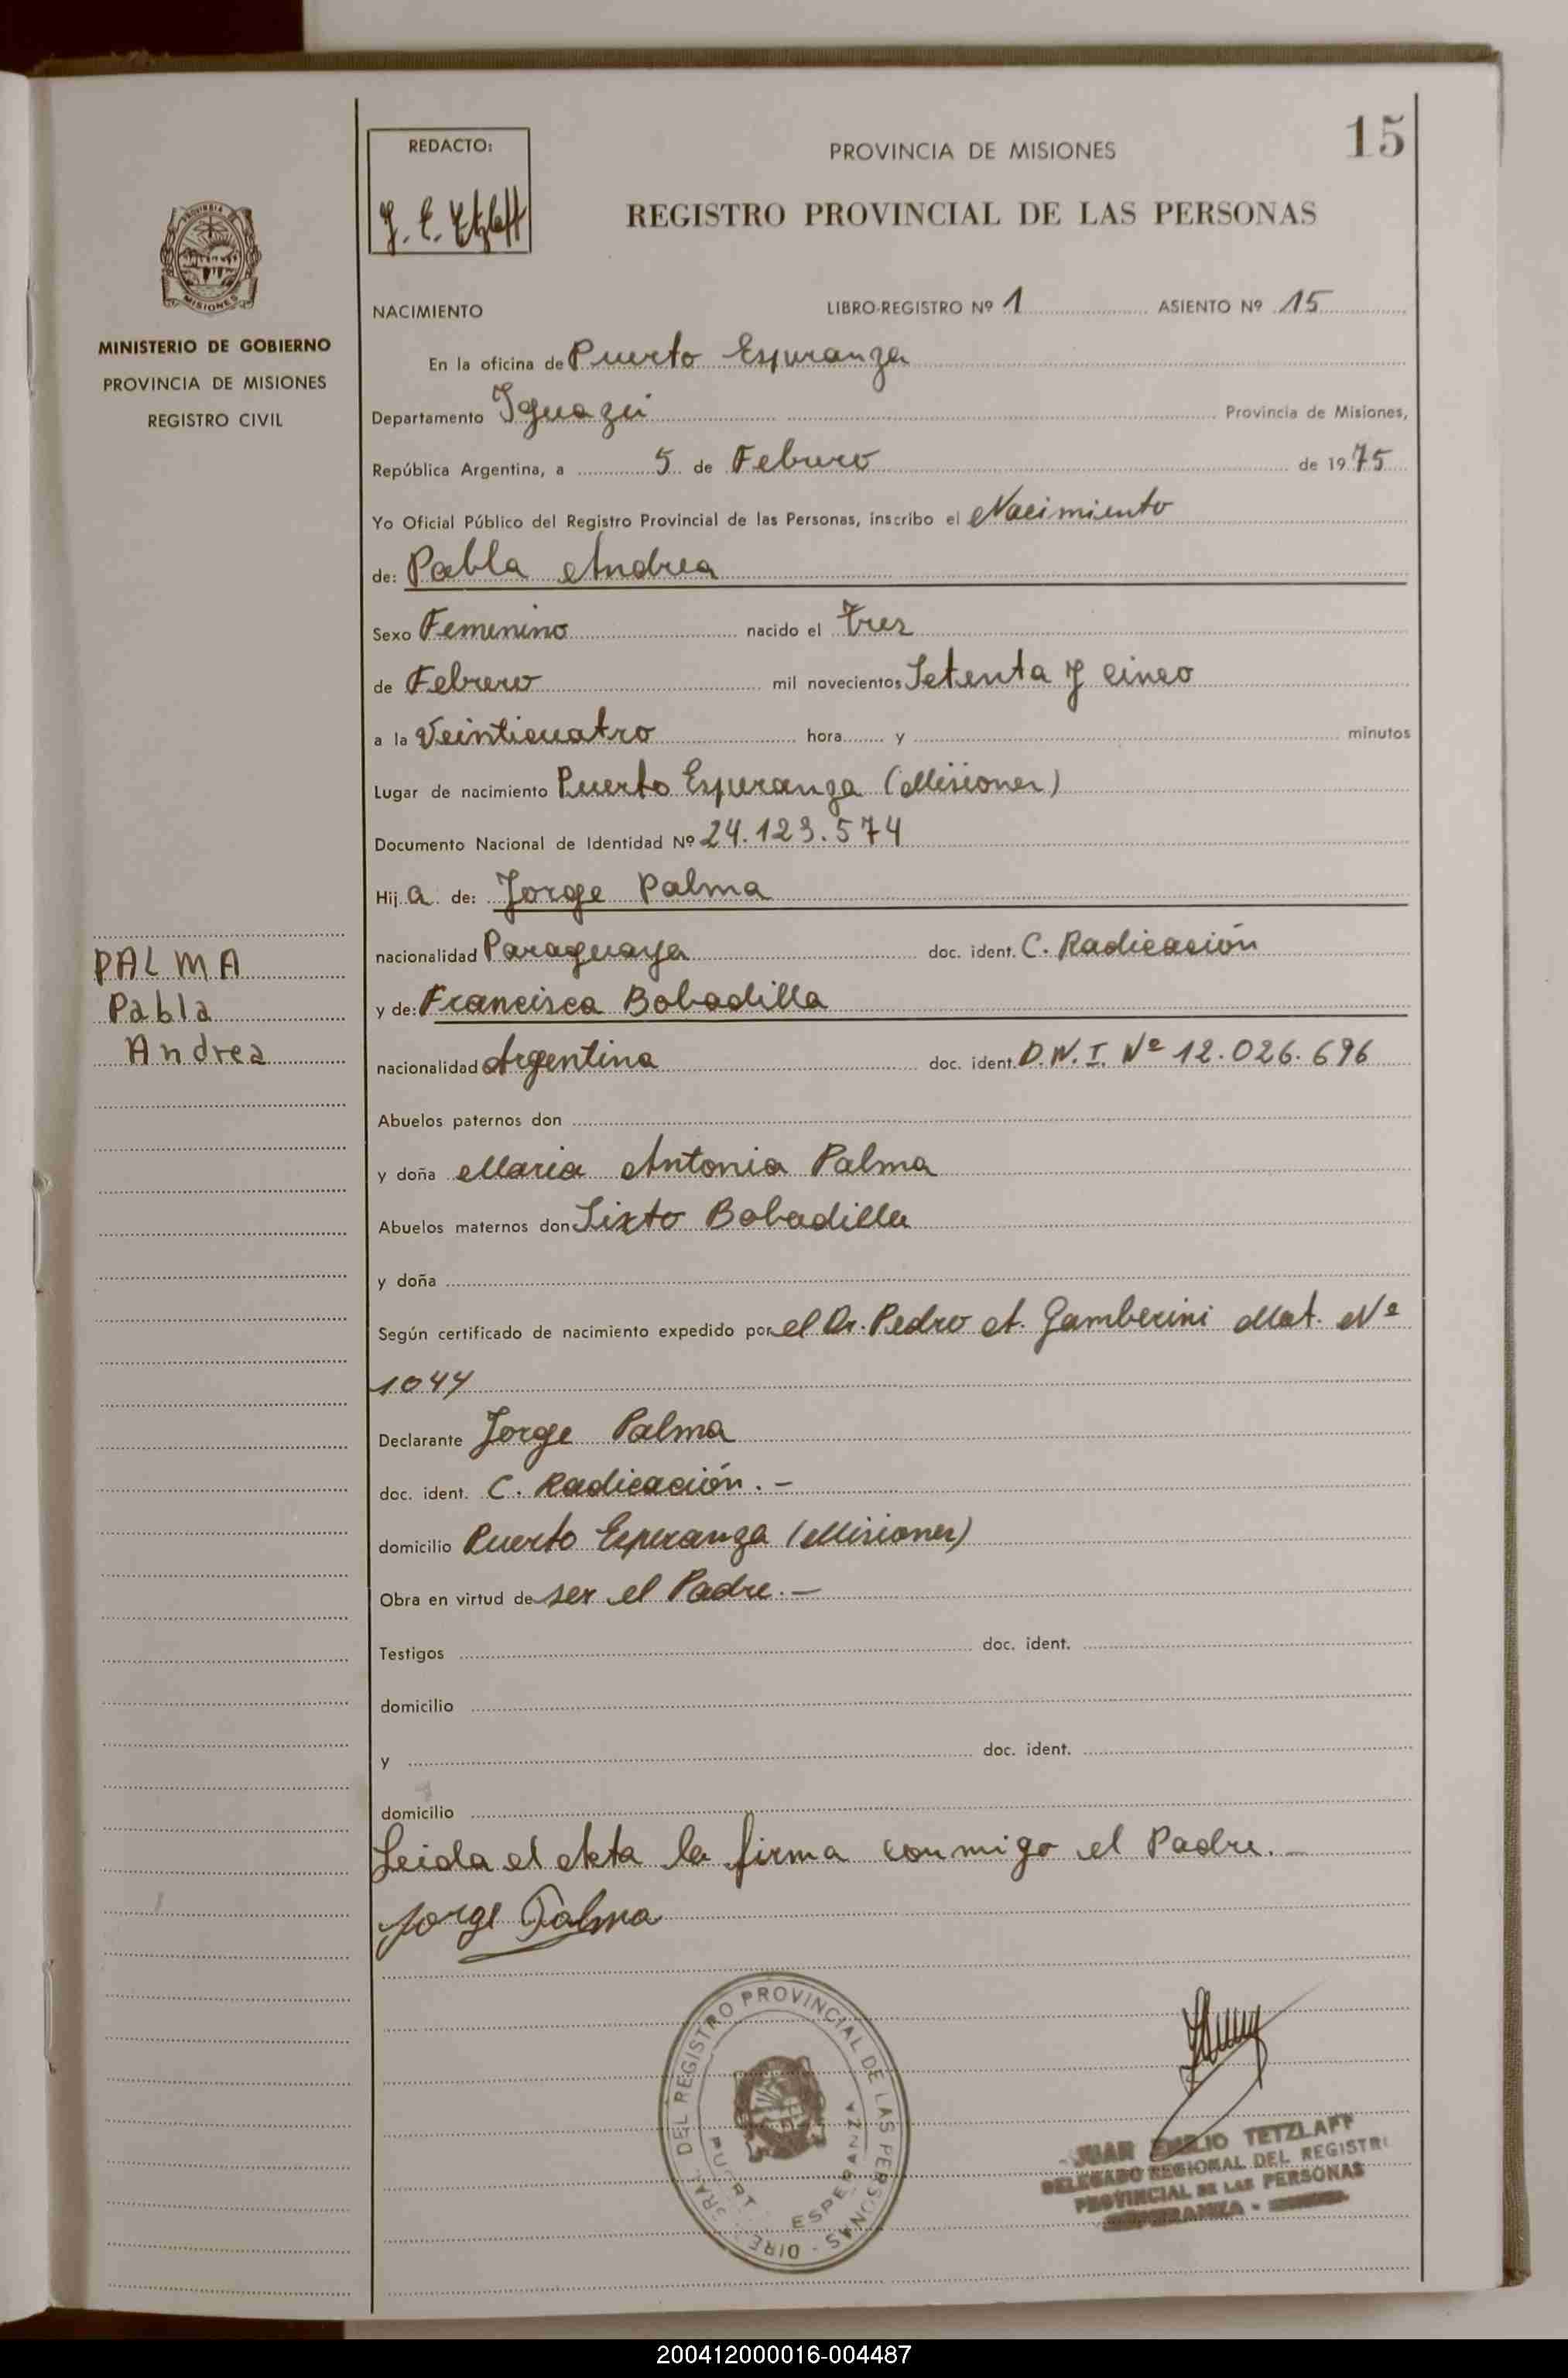 15
REDACTO:
PROVINCIA DE MISIONES
REGISTRO PROVINCIAL DE LAS PERSONAS
MISIONES
MINISTERIO DE GOBIERNO
PROVINCIA DE MISIONES
REGISTRO CIVIL
NACIMIENTO LIBRO-REGISTRO Nº 1 ASIENTO Nº 15
En la oficina de Puerto Esperanza
Departamento Iguazú Provincia de Misiones,
República Argentina, a 5 de Febrero de 1975
Yo Oficial Público del Registro Provincial de las Personas, inscribo el Nacimiento
de: Pabla Andrea
Sexo Femenino nacido el tres
de Febrero mil novecientos Setenta y cinco
a la Veinticuatro hora y minutos
Lugar de nacimiento Puerto Esperanza (Misiones)
Documento Nacional de Identidad Nº 24.123.574
Hija de: Jorge Palma
PALMA
Pabla
Andrea
nacionalidad Paraguaya doc. ident. C. Radicación
y de: Francisca Bobadilla
nacionalidad Argentina doc. ident. D.N.I. Nº 12.026.696
Abuelos paternos don
y doña Maria Antonia Palma
Abuelos maternos don Sixto Bobadilla
y doña
Según certificado de nacimiento expedido por el Dr. Pedro A. Gamberini Mat. Nº
1044
Declarante Jorge Palma
doc. ident. C. Radicación.-
domicilio Puerto Esperanza (Misiones)
Obra en virtud de ser el Padre.-
Testigos doc. ident.
domicilio
y doc. ident.
domicilio
Leida el Acta la firma conmigo el Padre.-
Jorge Palma
DEL REGISTRO PROVINCIAL DE LAS PERSONAS - DIRE
ESPERANZA
JUAN EMILIO TETZLAFF
DELEGADO REGIONAL DEL REGISTR
PROVINCIAL DE LAS PERSONAS
200412000016-004487